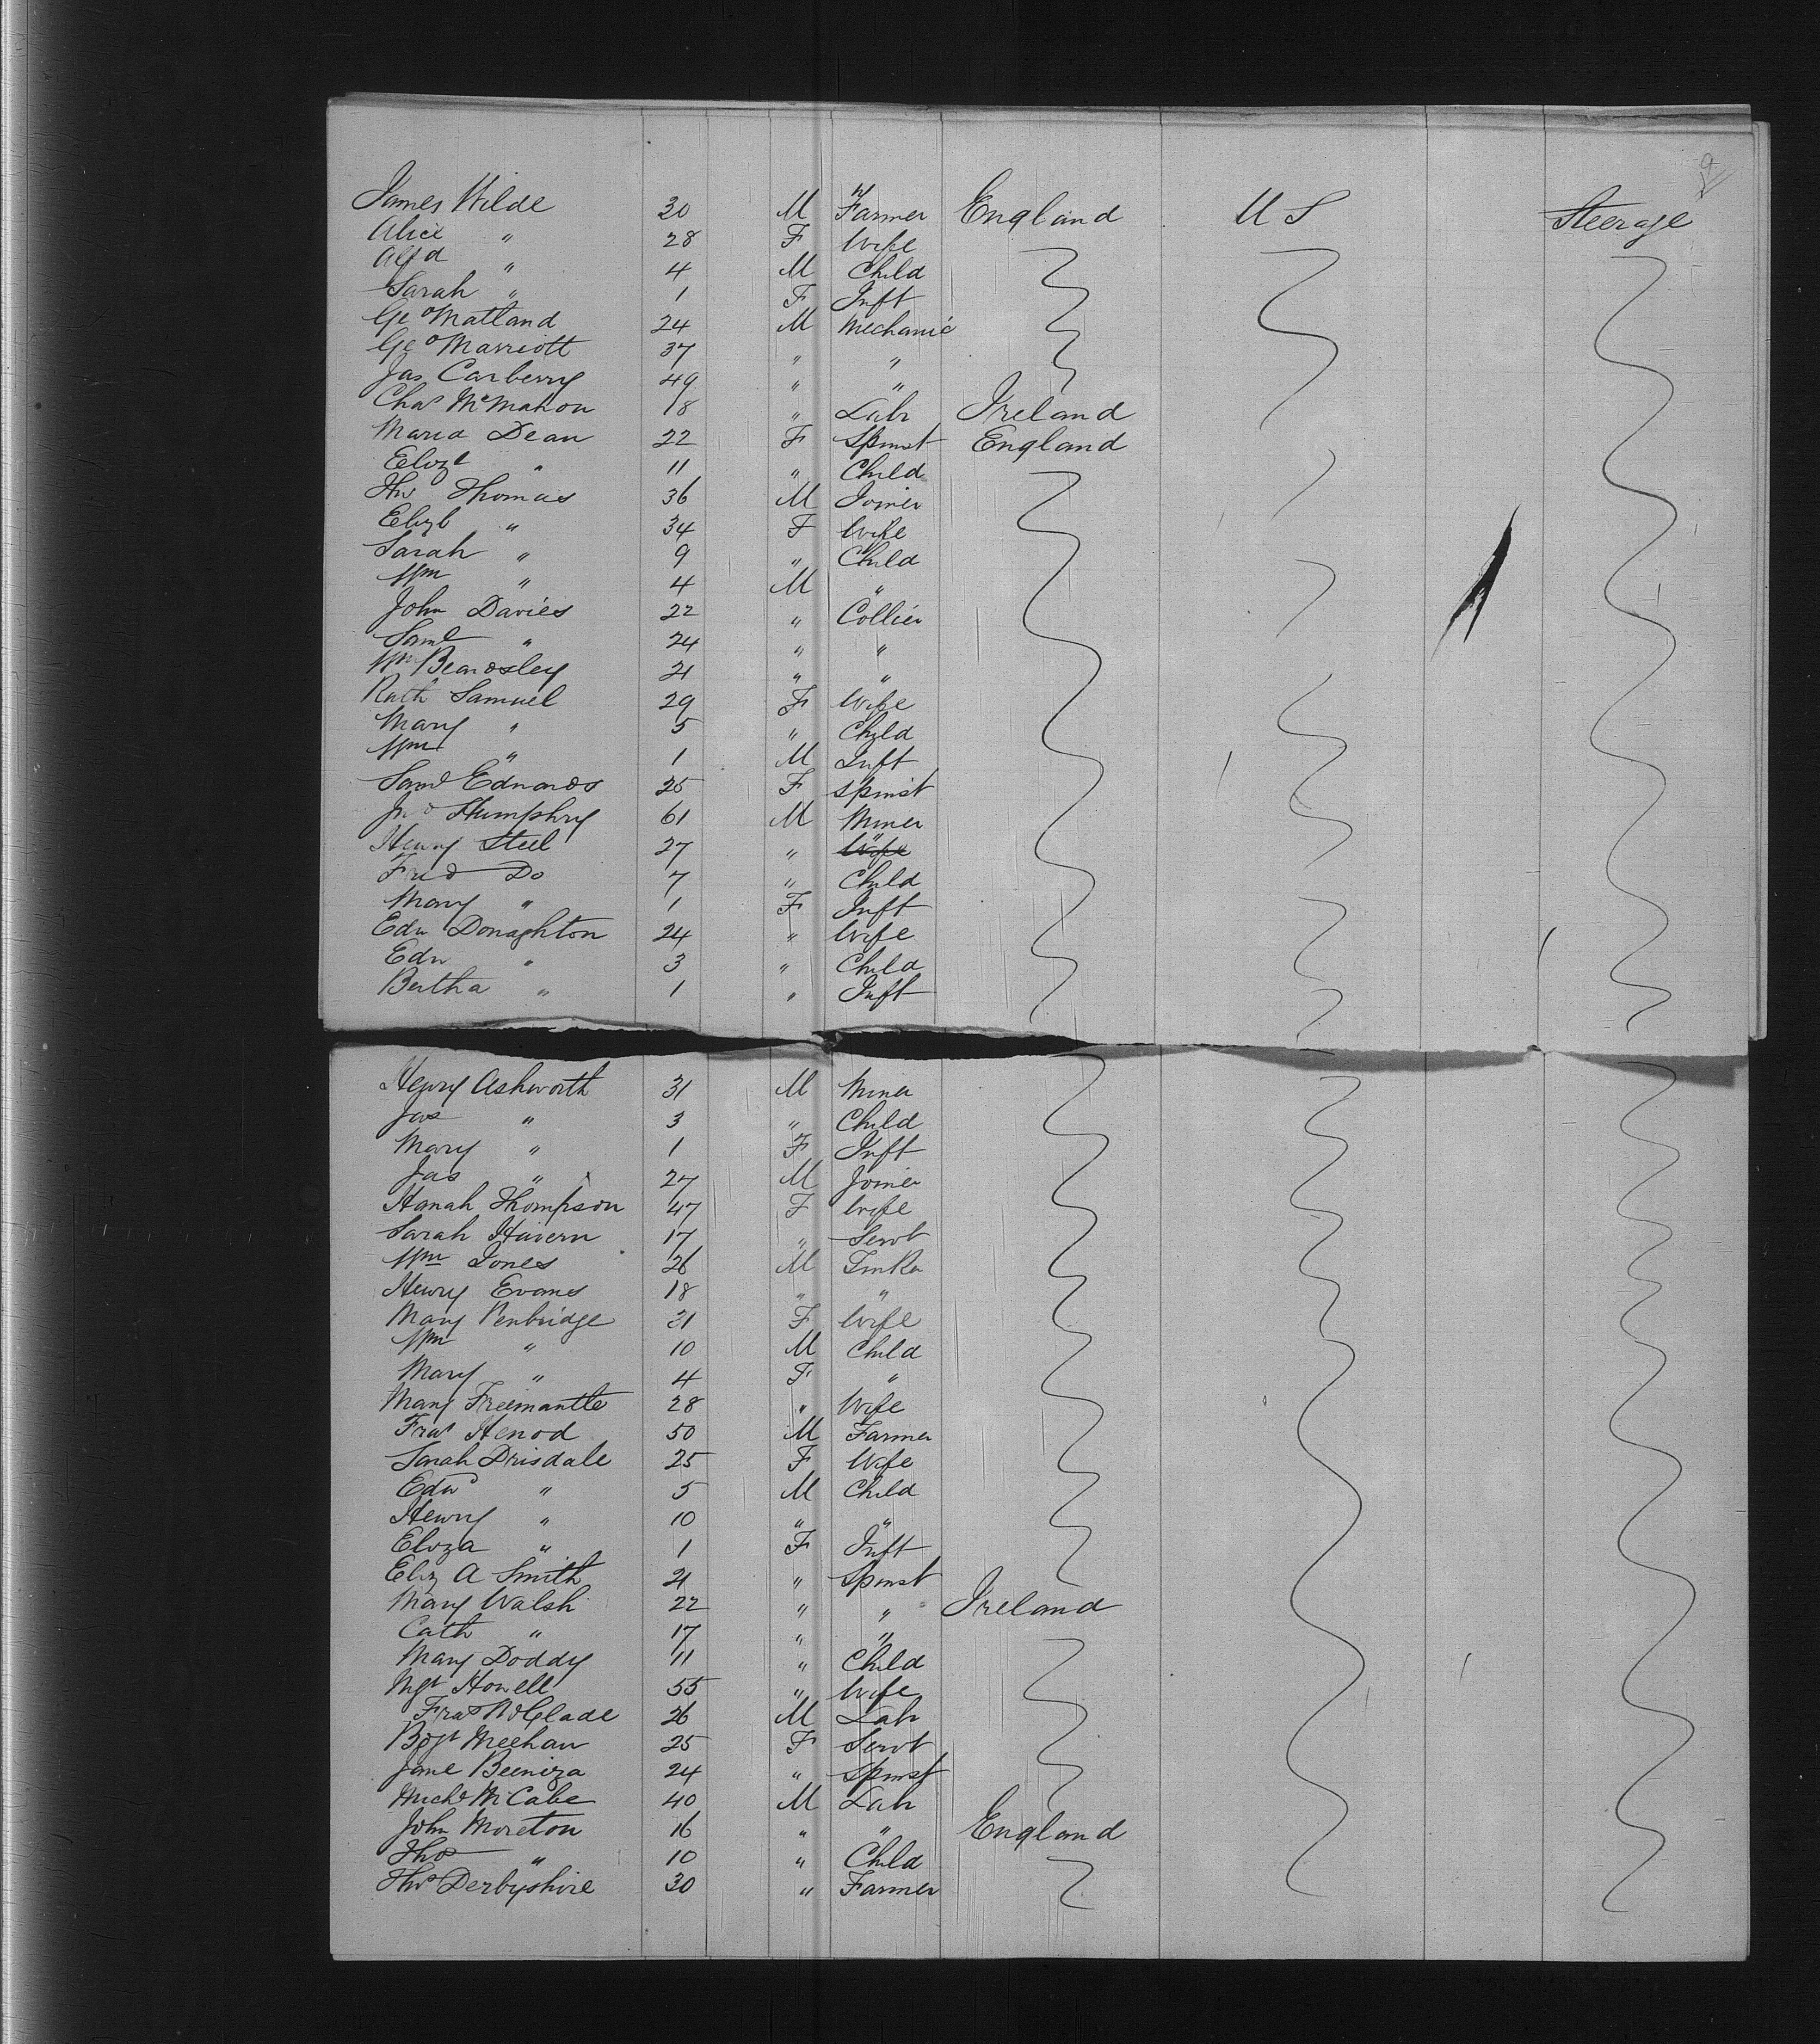 James Wilde 30 M Farmer England U S Steerage
Alice " 28 F Wife
Alfd " 4 M Child
Sarah " 1 F Inft
Geo Matland 24 M Mechanic
Geo Marriott 37 " "
Jas Carberry 49 " "
Chas McMahon 18 " Labr Ireland
Maria Dean 22 F Spinst England
Elizt " 11 " Child
Thos Thomas 36 M Joiner
Elizt " 34 F Wife
Sarah " 9 " Child
Wm " 4 M "
John Davies 22 " Collier
Saml " 24 " "
Wm Beardsley 21 " "
Ruth Samuel 29 F Wife
Mary " 5 " Child
Wm " 1 M Inft
Edwards 25 F Spinst
Jno Humphry 61 M Miner
Henry Steel 27 " "
Fred Do 7 " Child
Mary " 1 F Inft
Edw Donaghton 24 " Wife
Edw " 3 " Child
Bertha " 1 " Inft
Henry Ashworth 31 M Miner
Jas " 3 " Child
Mary " 1 F Inft
Jas " 27 M Joiner
Hanah Thompson 47 F Wife
Sarah Havern 17 " Servt
Wm Jones 26 M
Henry Evans 18 " "
Mary Penbridge 31 F Wife
Wm " 10 M Child
Mary " 4 F "
Mary Freemantle 28 " Wife
Fras Henod 50 M Farmer
Sarah Drisdale 25 F Wife
Edw " 5 M Child
Henry " 10 " "
Eliza " 1 F Inft
Eliz A Smith 21 " Spinst
Mary Walsh 22 " " Ireland
Cath " 17 " "
Mary Doddy 11 " Child
Mgt Howell 55 " Wife
Fras McGlade 26 M Labr
Bdgt Meehan 25 F Servt
Jane Beeniza 24 " Spinst
Michl McCabe 40 M Labr
John Moreton 16 " " England
Thos " 10 " Child
Thos Derbyshire 30 " Farmer